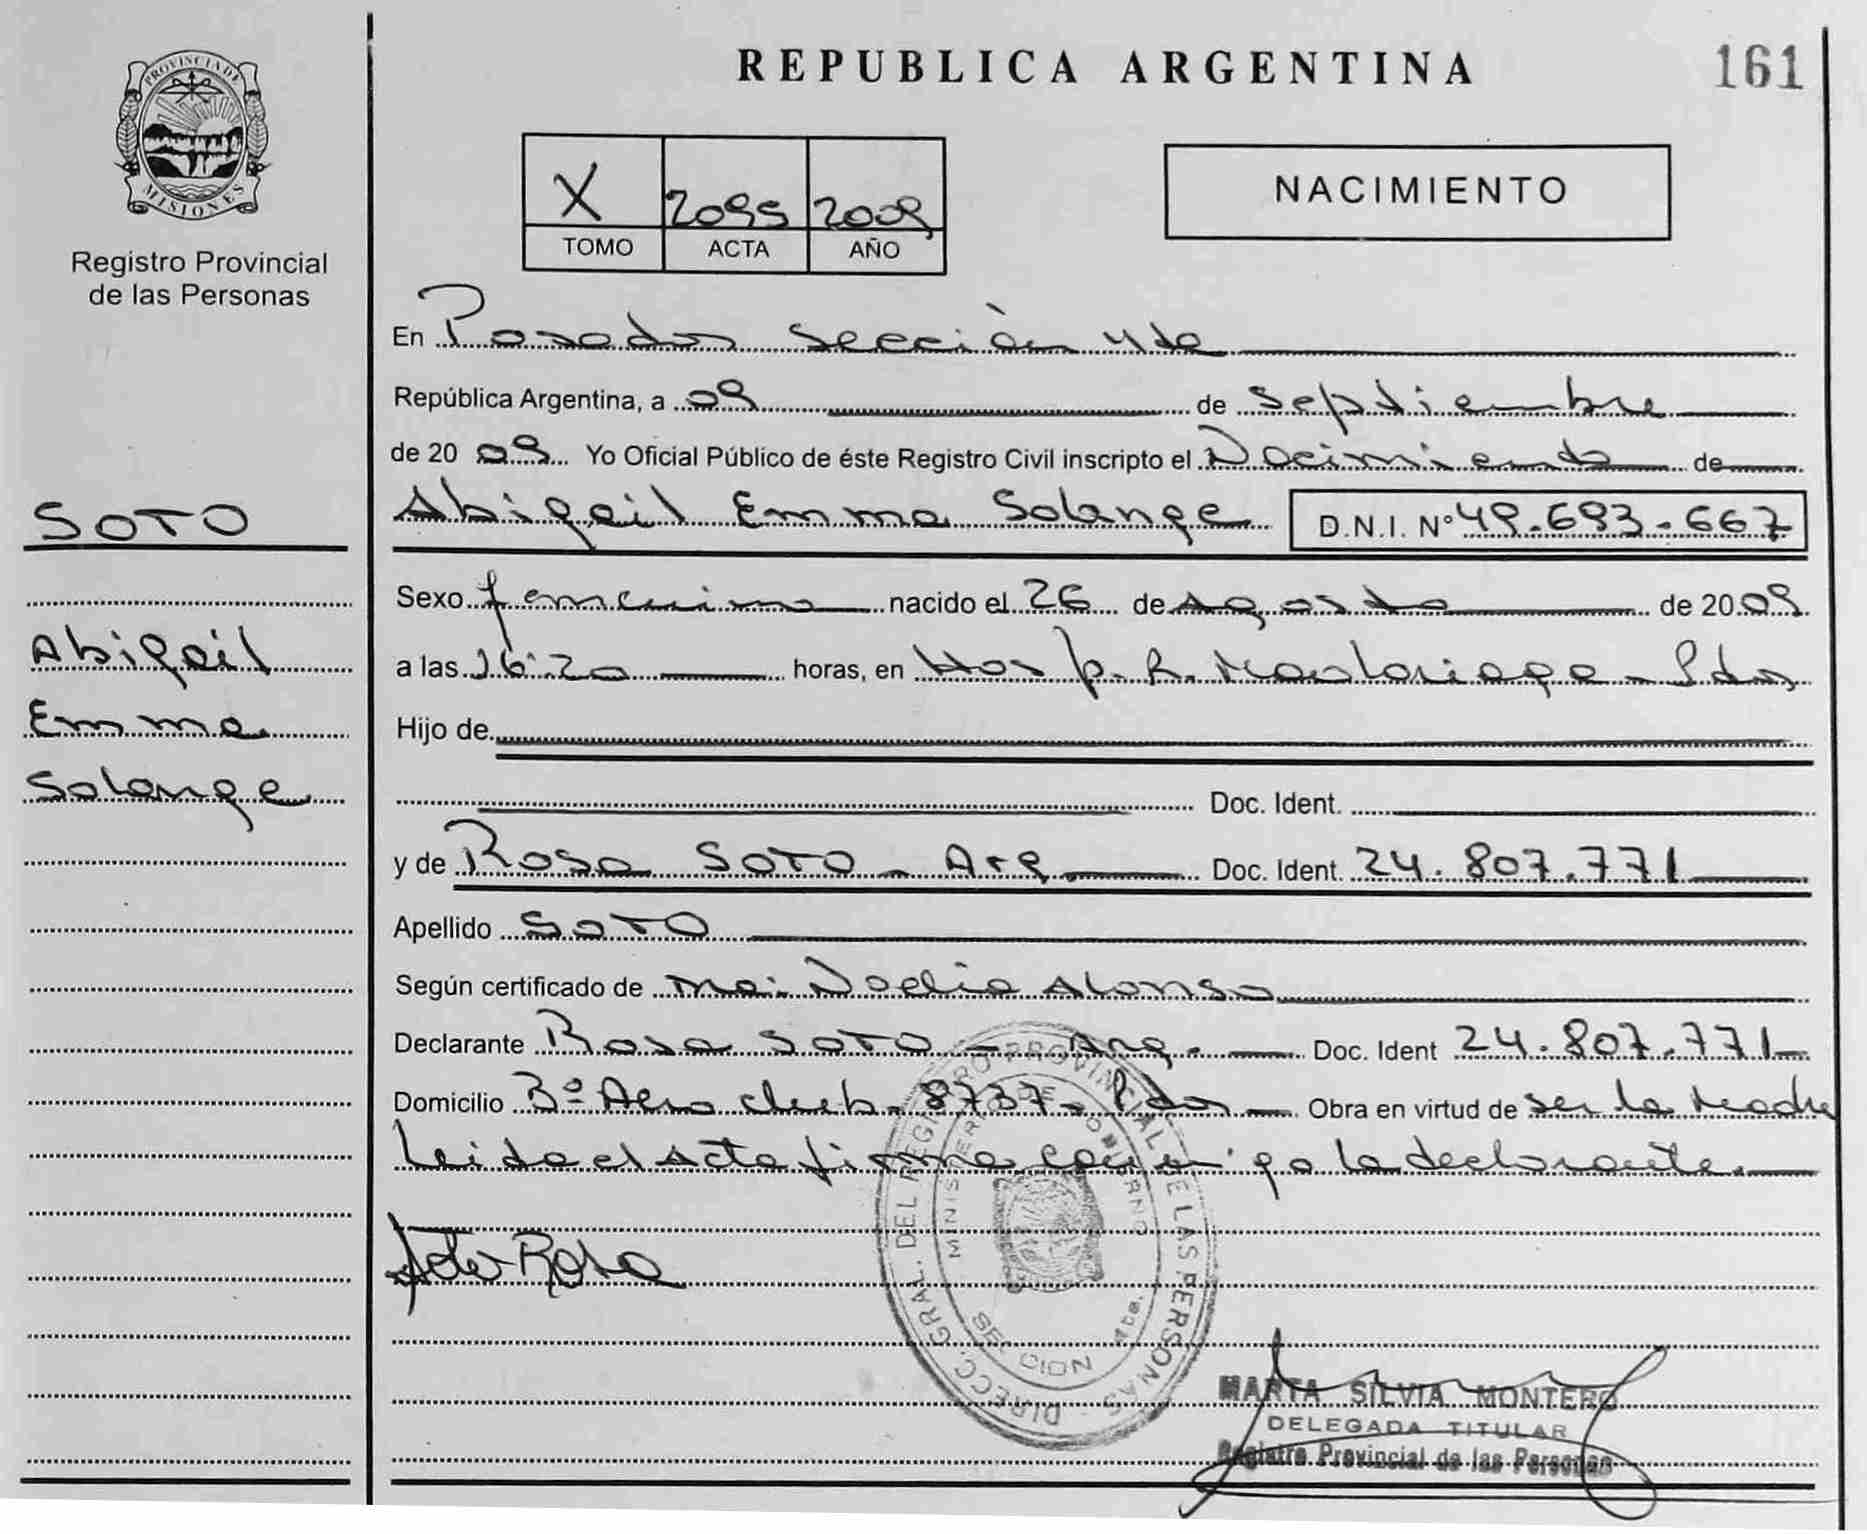 PROVINCIA DE
MISIONES
Registro Provincial
de las Personas
SOTO
Abigail
Emma
Solange
REPUBLICA ARGENTINA
161
X 2095 2009
TOMO ACTA AÑO
NACIMIENTO
En Posadas Sección 4ta
República Argentina, a 09 de Septiembre
de 2009 Yo Oficial Público de éste Registro Civil inscripto el Nacimiento de
Abigail Emma Solange D.N.I. N° 49.693.667
Sexo femenino nacido el 26 de Agosto de 2009
a las 16:20 horas, en Hosp. R. Madariaga - Pdas
Hijo de
Doc. Ident.
y de Rosa SOTO - Arg. Doc. Ident. 24.807.771
Apellido SOTO
Según certificado de Noelia Alonso
Declarante Rosa SOTO - Arg. Doc. Ident 24.807.771
Domicilio Bº Aero club - 8737 - Pdas Obra en virtud de ser la Madre
Leida el Acta firma conmigo la declarante.
Soto Rosa
DIRECC. GRAL. DEL REGISTRO PROVINCIAL DE LAS PERSONAS
MINISTERIO DE GOBIERNO
SECCION 4ta.
MARTA SILVIA MONTERO
DELEGADA TITULAR
Registro Provincial de las Personas